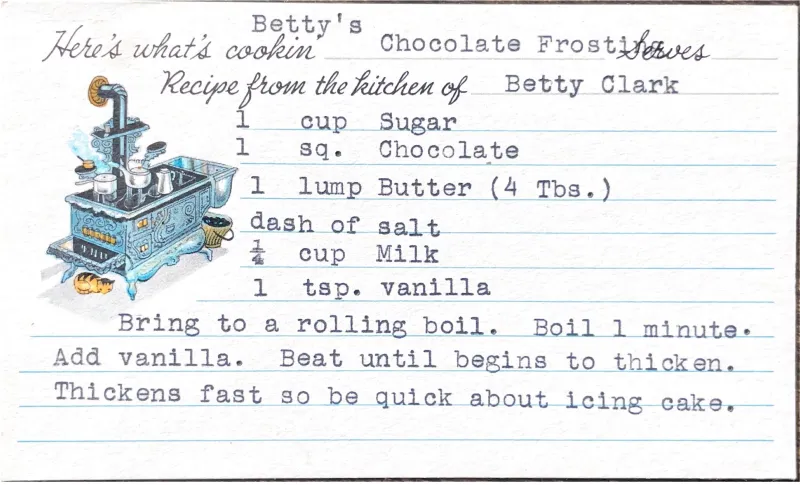 Betty's
Here's what's cookin' Chocolate Frosting Serves
Recipe from the kitchen of Betty Clark
1 cup Sugar
1 sq. Chocolate
1 lump Butter (4 Tbs.)
dash of salt
¼ cup Milk
1 tsp. vanilla
Bring to a rolling boil. Boil 1 minute.
Add vanilla. Beat until begins to thicken.
Thickens fast so be quick about icing cake.